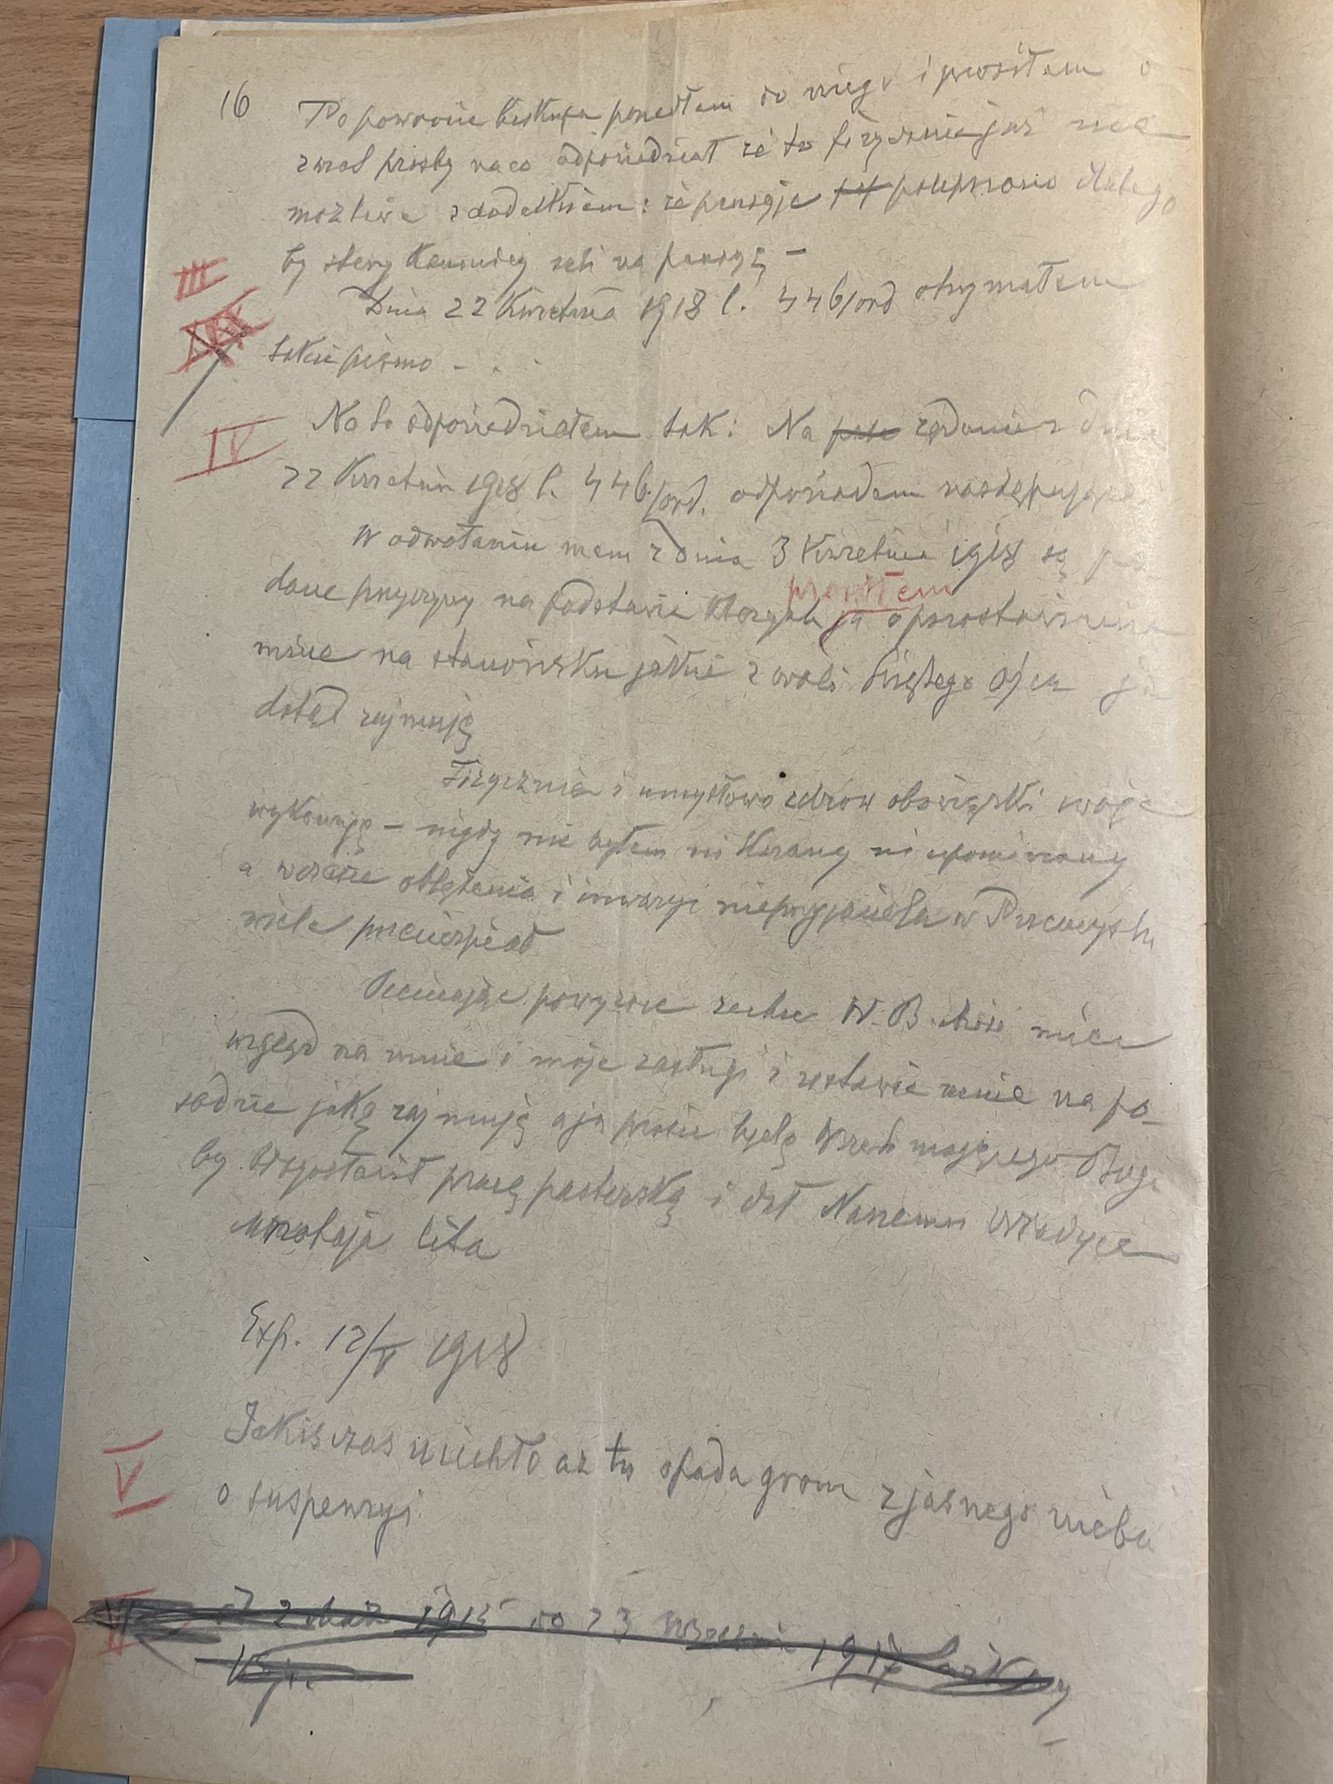 16
Po powrocie biskupa poszedłem do niego i prosiłem o
zwrot prośby na co odpowiedział że to fizycznie już nie
możliwe z dodatkiem: że pensyje polepszono dlatego
by starzy Kanonicy szli na pensyę –
III
Dnia 22 Kwietnia 1918 l. 446/ord otrzymałem
takie pismo – . .
IV
Na to odpowiedziałem tak: Na żądanie z dnia
22 Kwietnia 1918 l. 446/ord. odpowiadam następująco
W odwołaniu mem z dnia 3 Kwietnia 1918 są po
dane przyczyny na podstawie których prosiłem o pozostawienie
mnie na stanowisku jakie z woli Świętego Ojca ja
dotąd zajmuję
Fizycznie i umysłowo zdrów obowiązki swoje
wykonuję – nigdy nie byłem ni karany ni upominany
a w czasie oblężenia i inwazyi nieprzyjaciela w Przemyślu
wiele przecierpiał
Oceniając powyższe zechce W. B. mieć
wzgląd na mnie i moje zasługi i zostawić mnie na po-
sadzie jaką zajmuję a ja prosić będę Wszechmogącego Boga
by błogosławił pracę pasterską i dał Naszemu Władyce
Mnohaja lita
Exp. 12/V 1918
V
Jakiś czas ucichło aż tu spada grom z jasnego nieba
o suspenzyi
VI
od 2 maja 1915 do 23 Września 1917